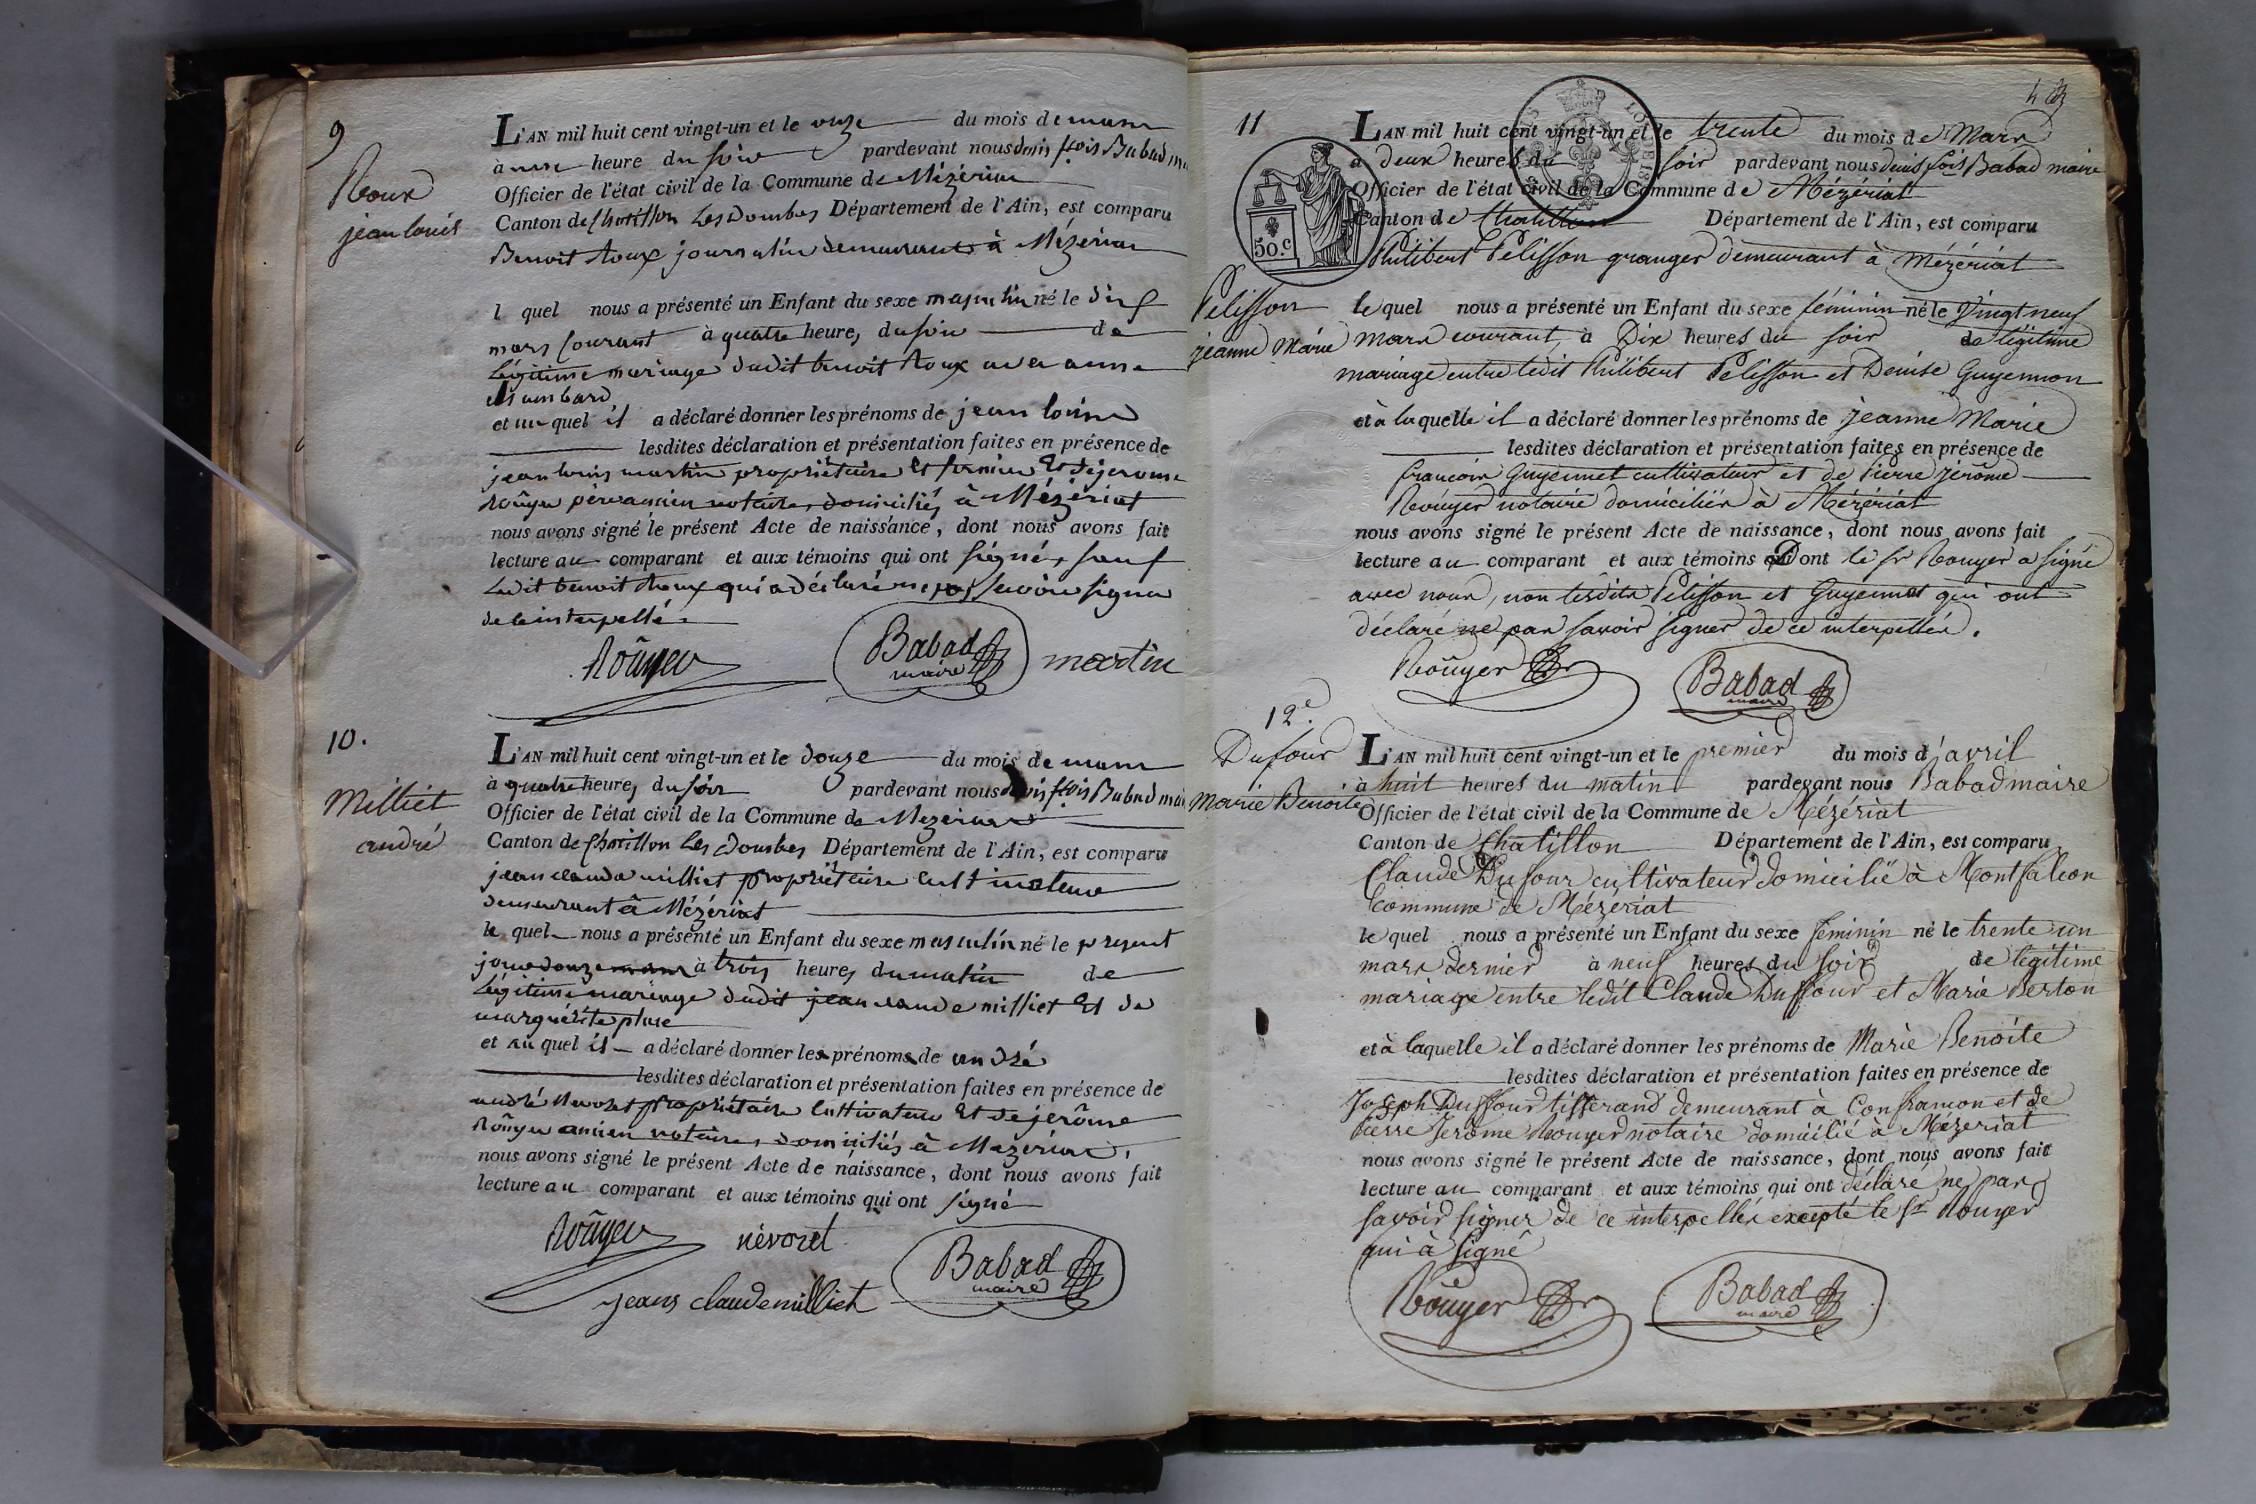 9
Roux
jean louis
L'AN mil huit cent vingt-un et le onze du mois de mars
à une heure du soir pardevant nous denis fçois Babad
Officier de l'état civil de la Commune de Mézériat
Canton de Chatillon Les Dombes Département de l'Ain, est comparu
Benoit Roux journalier demeurant à Mézériat
l quel nous a présenté un Enfant du sexe masculin né le dix
mars Courant à quatre heures du soir de
Légitime mariage dudit benoit Roux avec anne
et au quel il a déclaré donner les prénoms de jean louis
lesdites déclaration et présentation faites en présence de
jean louis martin propriétaire Et fermier Et de jerome
Roûyer ancien notaire, domiciliés à Mézériat
nous avons signé le présent Acte de naissance, dont nous avons fait
lecture au comparant et aux témoins qui ont signé, sauf
Ledit benoit Roux qui a déclaré ne pas savoir signer
de ce interpellé.
Roûyer
Babad
maire
martin
10.
Milliet
andré
L'AN mil huit cent vingt-un et le douze du mois de mars
à quatre heures du soir pardevant nous denis fçois Babad
Officier de l'état civil de la Commune de Mezeriat
Canton de Chatillon Les Dombes Département de l'Ain, est comparu
jean claude milliet propriétaire Cultivateur
demeurant à Mézériat
le quel nous a présenté un Enfant du sexe masculin né le présent
jour douze mars à trois heures du matin de
Légitime mariage dudit jean claude milliet Et de
marguerite
et au quel il a déclaré donner les prénoms de andré
lesdites déclaration et présentation faites en présence de
andré Nevoret propriétaire Cultivateur Et de jerôme
Roûyer ancien notaire, domiciliés à Mezériat,
nous avons signé le présent Acte de naissance, dont nous avons fait
lecture au comparant et aux témoins qui ont signé
Roûyer névoret
Babad
maire
jean claude milliet
4
11
50.c
Pelisson
jeanne Marie
L'AN mil huit cent vingt-un et le trente du mois de Mars
à deux heures du soir pardevant nous denis fçois Babad maire
Officier de l'état civil de la Commune de Mézériat
Canton de Chatillon Département de l'Ain, est comparu
Philibert Pelisson granger demeurant à Mézériat
le quel nous a présenté un Enfant du sexe féminin né le Vingt neuf
mars courant, à Dix heures du soir de légitime
mariage entre ledit Philibert Pelisson et Denise Guyennon
et à laquelle il a déclaré donner les prénoms de jeanne Marie
lesdites déclaration et présentation faites en présence de
françois Guyennet cultivateur et de Pierre jerôme
Roûyer notaire domiciliés à Mézériat
nous avons signé le présent Acte de naissance, dont nous avons fait
lecture au comparant et aux témoins Dont le sr Rouyer a signé
avec nous, non lesdits Pelisson et Guyennet qui ont
déclaré ne pas savoir signer de ce interpellés.
Roûyer
Babad
maire
12e.
Dufour
Marie Benoite
L'AN mil huit cent vingt-un et le premier du mois d'avril
à huit heures du matin pardevant nous Babad maire
Officier de l'état civil de la Commune de Mézériat
Canton de Chatillon Département de l'Ain, est comparu
Claude Dufour cultivateur domicilié à Montfalcon
Commune de Mézeriat
le quel nous a présenté un Enfant du sexe féminin né le trente un
mars dernier à neuf heures du soir de légitime
mariage entre ledit Claude Duffour et Marie Berton
et à laquelle il a déclaré donner les prénoms de Marie Benoite
lesdites déclaration et présentation faites en présence de
Joseph Duffour tisserand demeurant à Confrançon et de
Pierre Jerome Rouyer notaire domicilié à Mézeriat
nous avons signé le présent Acte de naissance, dont nous avons fait
lecture au comparant et aux témoins qui ont déclaré ne pas
savoir signer de ce interpellés excepté le sr Rouyer
qui à signé
Roûyer
Babad
maire